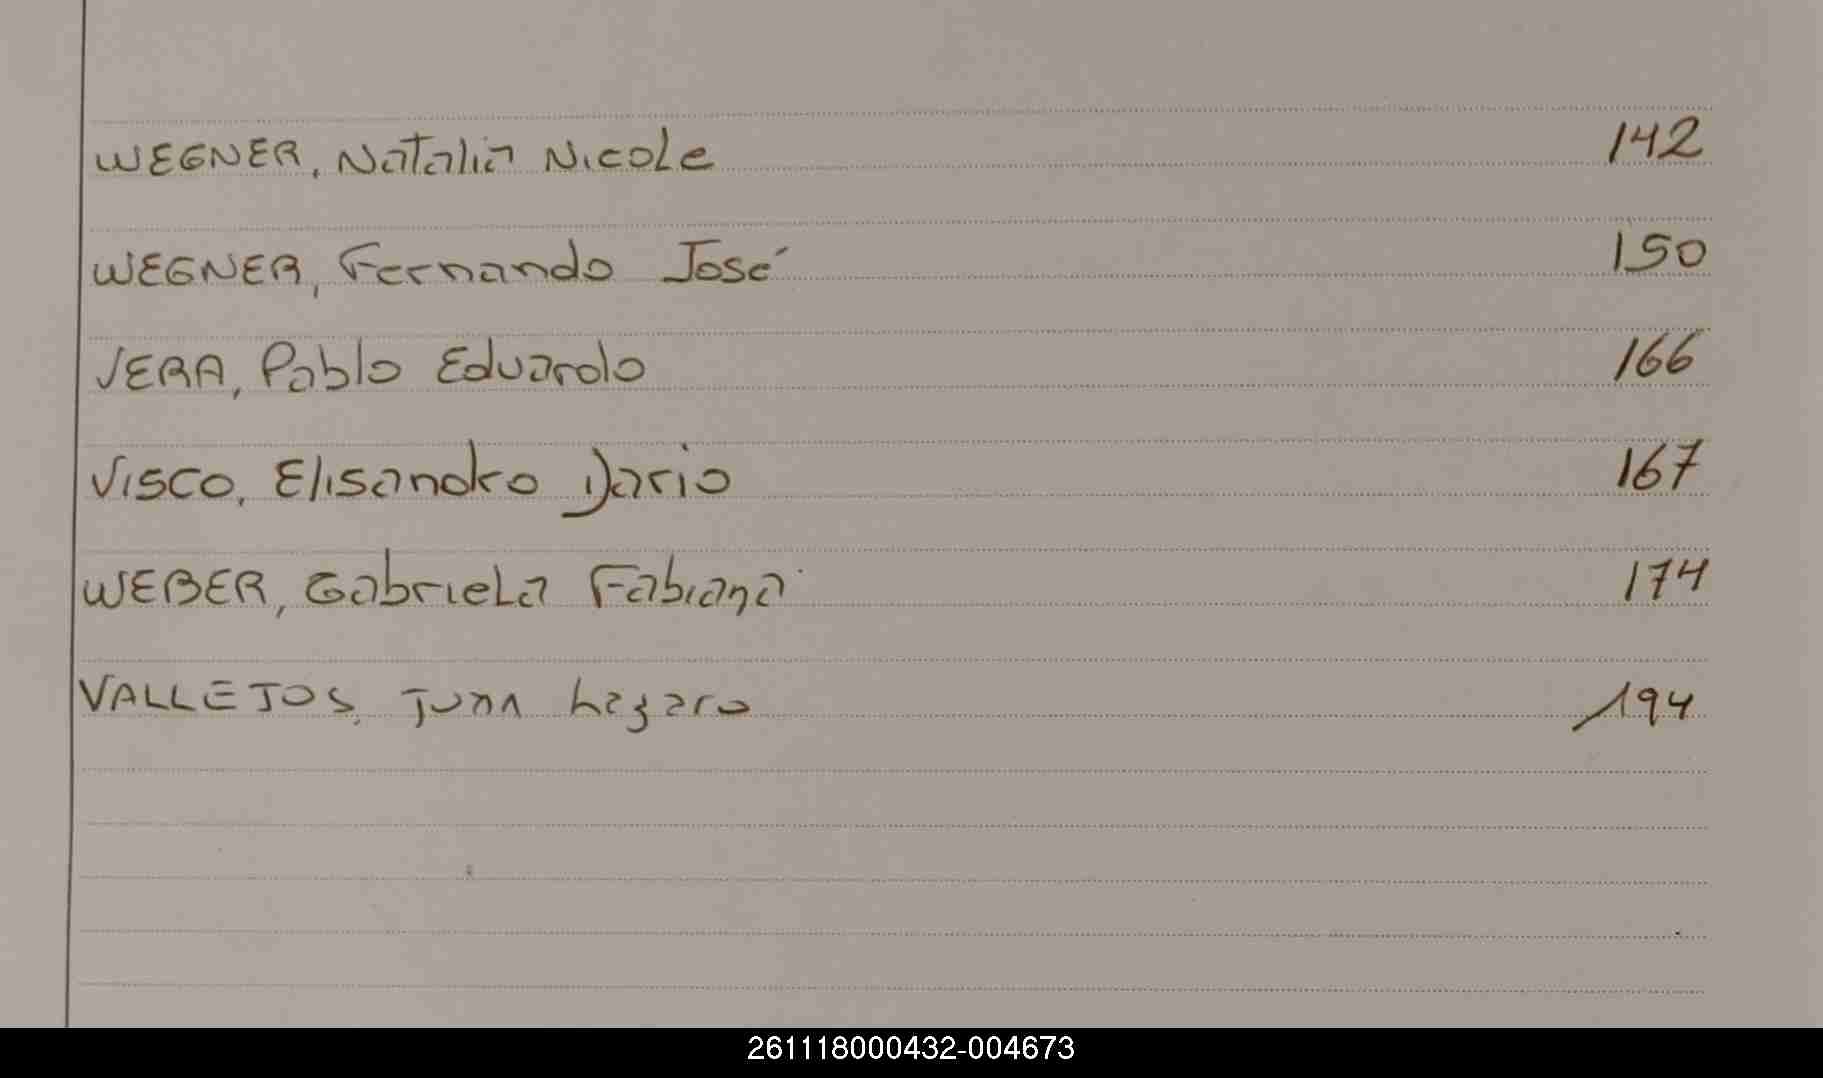 WEGNER, Natalia Nicole 142
WEGNER, Fernando José 150
VERA, Pablo Eduardo 166
VISCO, Elisandro Dario 167
WEBER, Gabriela Fabiana 174
VALLEJOS, Juan Lazaro 194
261118000432-004673